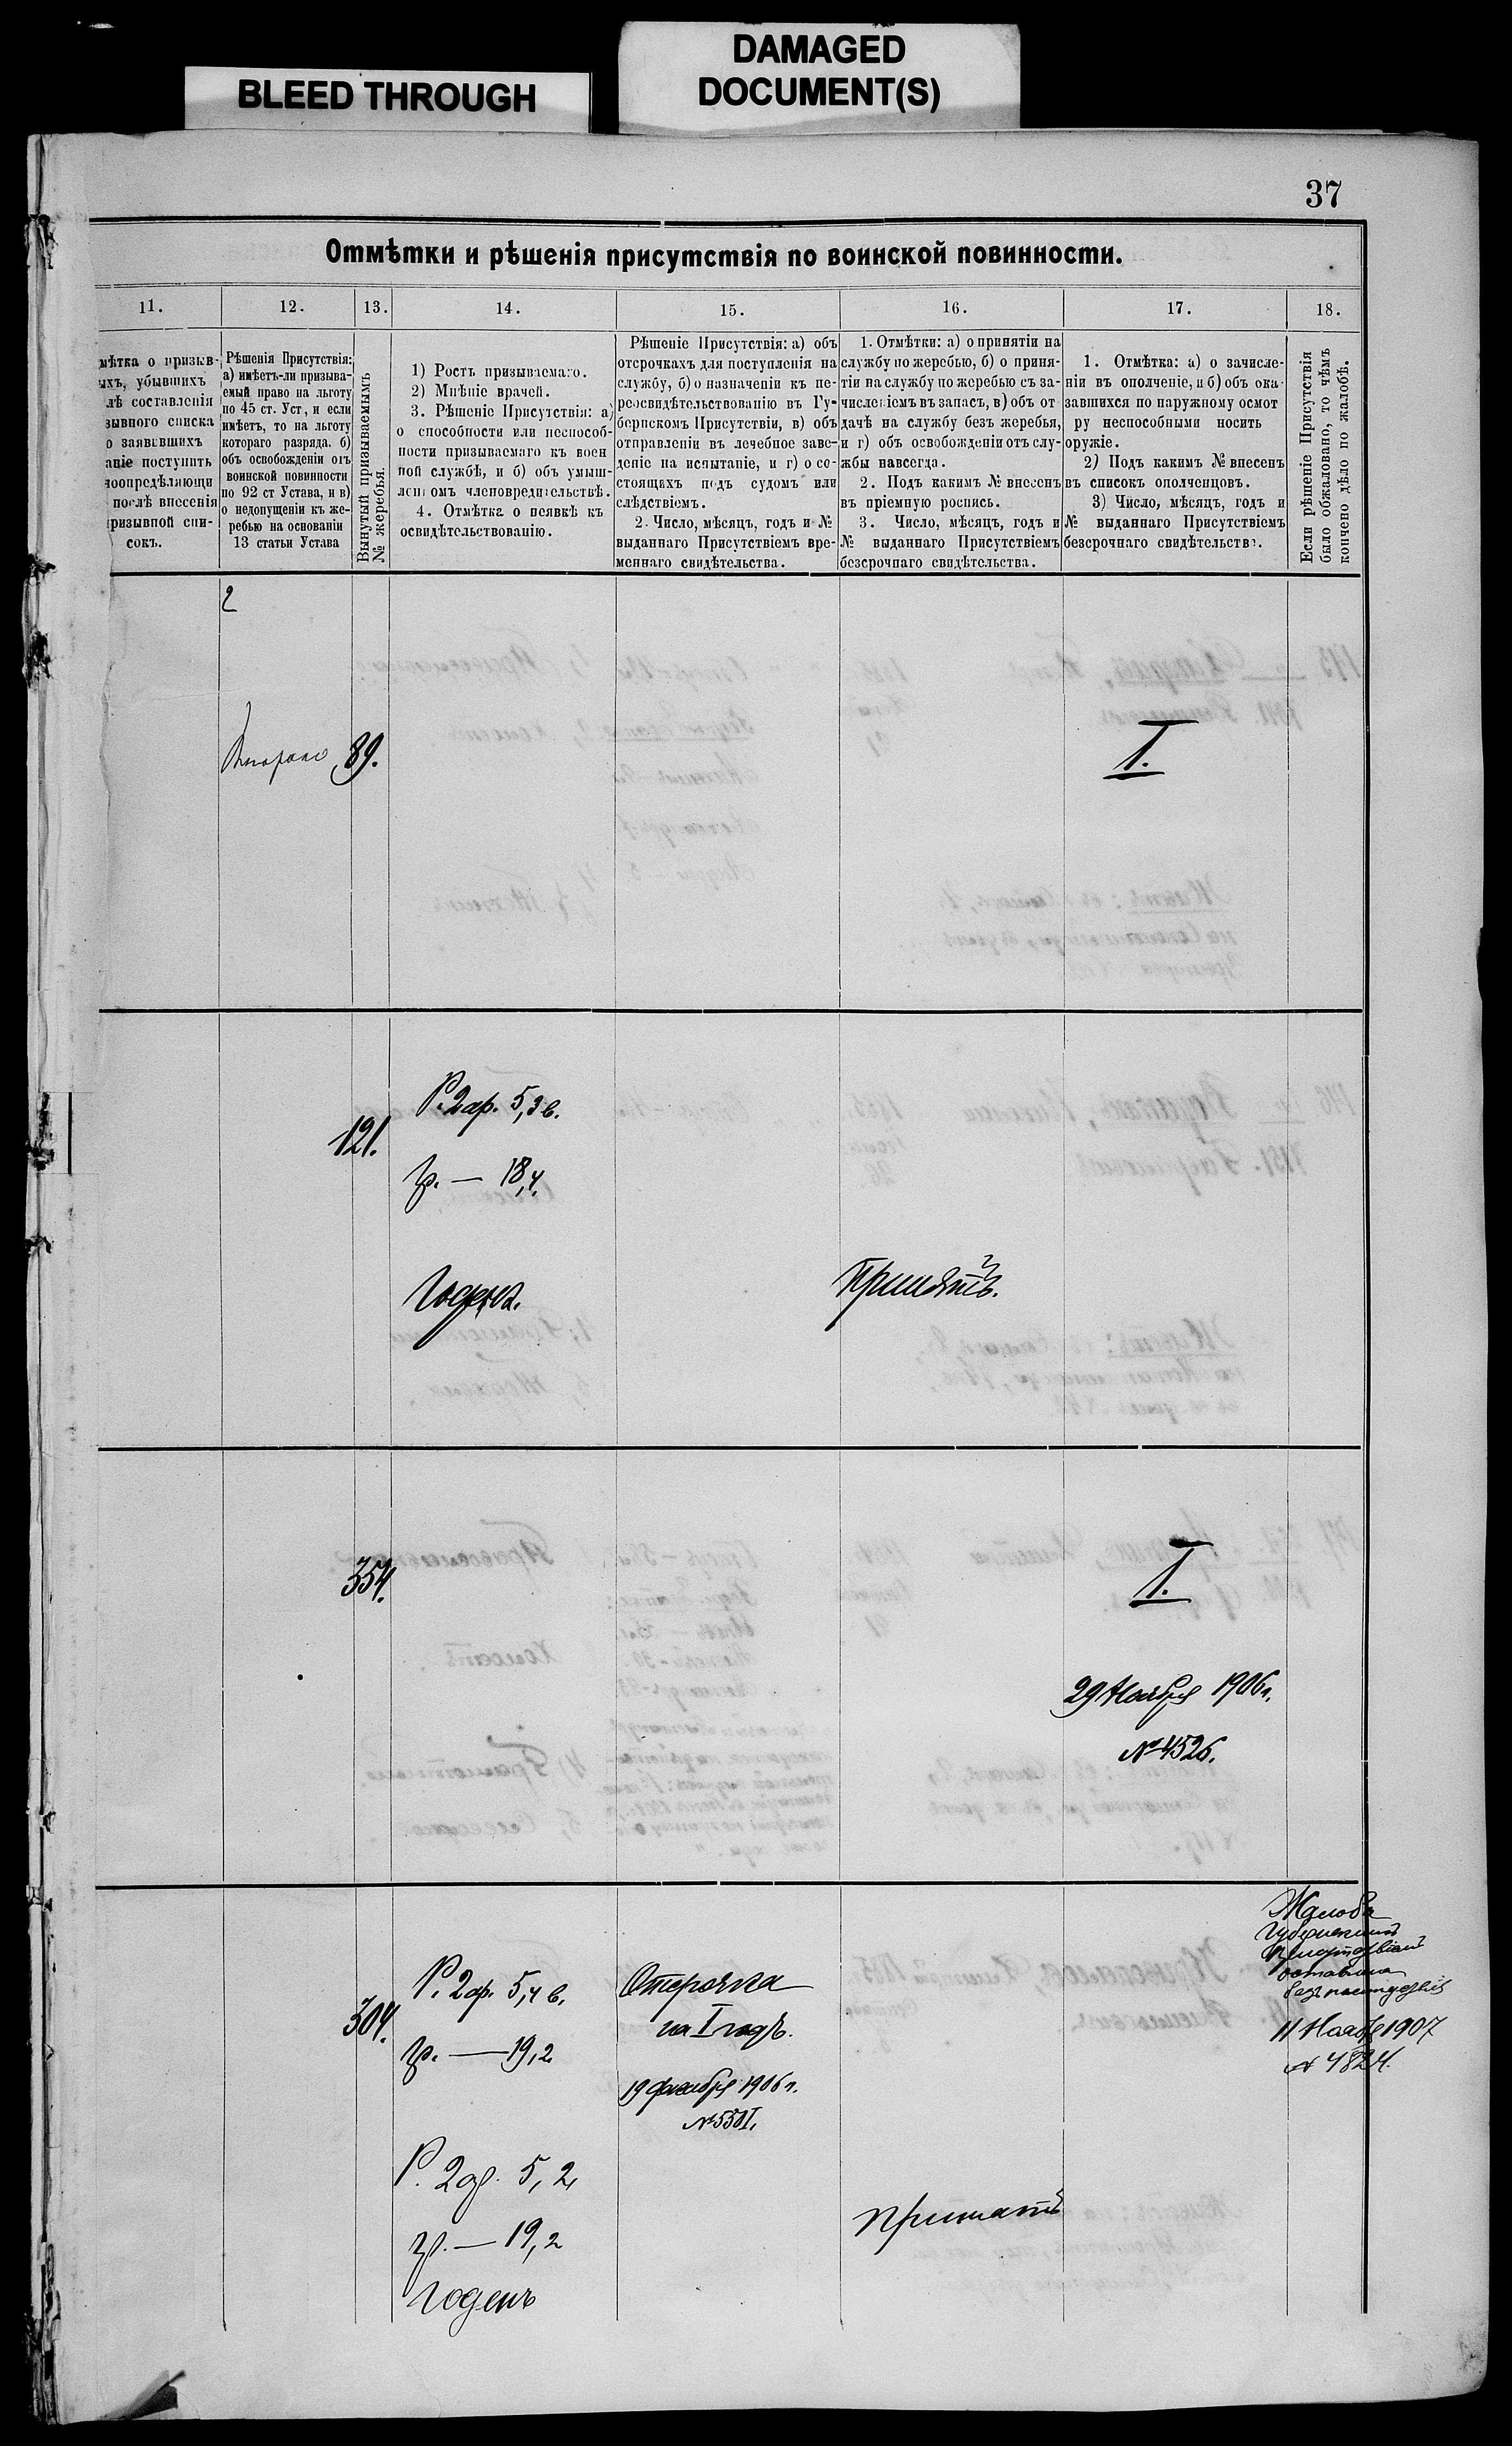 BLEED THROUGH
DAMAGED
DOCUMENT(S)
37
Отмѣтки и рѣшенія присутствія по воинской повинности.
11.
12.
13.
14.
15.
16.
17.
18.
мѣтка о призыв-
ыхъ, убывшихъ
лѣ составленія
зывного списка
о заявившихъ
аніе поступить
ноопредѣляющи
послѣ внесенія
ризывной спи-
сокъ.
Рѣшенія Присутствія:
а) имѣетъ-ли призыва-
емый право на льготу
по 45 ст. Уст, и если
имѣетъ, то на льготу
котораго разряда. б)
объ освобожденіи отъ
воинской повинности
по 92 ст Устава, и в)
о недопущеніи къ же-
ребью на основаніи
13 статьи Устава
Вынутый призываемымъ
№ жеребья.
1) Ростъ призываемаго.
2) Мнѣніе врачей.
3. Рѣшеніе Присутствія: а)
о способности или неспособ-
ности призываемаго къ воен
ной службѣ, и б) объ умыш-
ленномъ членовредительствѣ.
4. Отмѣтка о неявкѣ къ
освидѣтельствованію.
Рѣшеніе Присутствія: а) объ
отсрочкахъ для поступленія на
службу, б) о назначеніи къ пе-
реосвидѣтельствованію въ Гу-
бернскомъ Присутствіи, в) объ
отправленіи въ лечебное заве-
деніе на испытаніе, и г) о со-
стоящихъ подъ судомъ или
слѣдствіемъ.
2. Число, мѣсяцъ, годъ и №
выданнаго Присутствіемъ вре-
меннаго свидѣтельства.
1. Отмѣтки: а) о принятіи на
службу по жеребью, б) о приня-
тіи на службу по жеребью съ за-
численіемъ въ запасъ, в) объ от
дачѣ на службу безъ жеребья,
и г) объ освобожденіи отъ слу-
жбы навсегда.
2. Подъ какимъ № внесенъ
въ пріемную роспись.
3. Число, мѣсяцъ, годъ и
№ выданнаго Присутствіемъ
безсрочнаго свидѣтельства.
1. Отмѣтка: а) о зачисле-
ніи въ ополченіе, и б) объ ока-
завшихся по наружному осмот
ру неспособными носить
оружіе.
2) Подъ какимъ № внесенъ
въ списокъ ополченцовъ.
3) Число, мѣсяцъ, годъ и
№ выданнаго Присутствіемъ
безсрочнаго свидѣтельства.
Если рѣшеніе Присутствія
было обжаловано, то чѣмъ
кончено дѣло по жалобѣ.
2
Второго 89.
I.
121.
Р. 2 ар. 5,3 в.
гр. — 18,4.
Годенъ.
Принятъ.
354.
I.
29 Ноября 1906 г.
№ 4526.
304.
Р. 2 ар. 5,4 в.
гр. — 19,2
Отсрочка
на I годъ.
19 декабря 1906 г.
№ 5501.
Р. 2 ар. 5,2
гр. — 19,2
годенъ
принятъ
Жалоба
Губернскимъ
Присутствіемъ
оставлена
безъ послѣдствій
11 Ноября 1907
№ 4824.